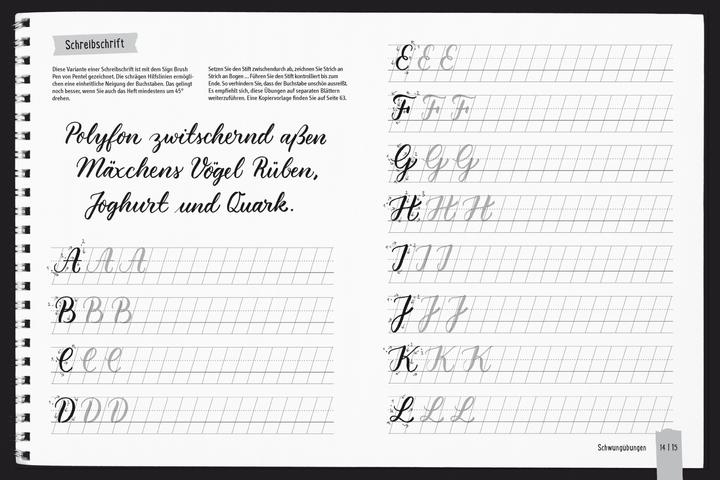 Schreibschrift
Diese Variante einer Schreibschrift ist mit dem Sign Brush
Pen von Pentel gezeichnet. Die schrägen Hilfslinien ermögli-
chen eine einheitliche Neigung der Buchstaben. Das gelingt
noch besser, wenn Sie auch das Heft mindestens um 45°
drehen.
Setzen Sie den Stift zwischendurch ab, zeichnen Sie Strich an
Strich an Bogen ... Führen Sie den Stift kontrolliert bis zum
Ende. So verhindern Sie, dass der Buchstabe unschön ausreißt.
Es empfiehlt sich, diese Übungen auf separaten Blättern
weiterzuführen. Eine Kopiervorlage finden Sie auf Seite 63.
Polyfon zwitschernd aßen
Mäxchens Vögel Rüben,
Joghurt und Quark.
A A A
B B B
C C C
D D D
E E E
F F F
G G G
H H H
I I I
J J J
K K K
L L L
Schwungübungen 14 | 15